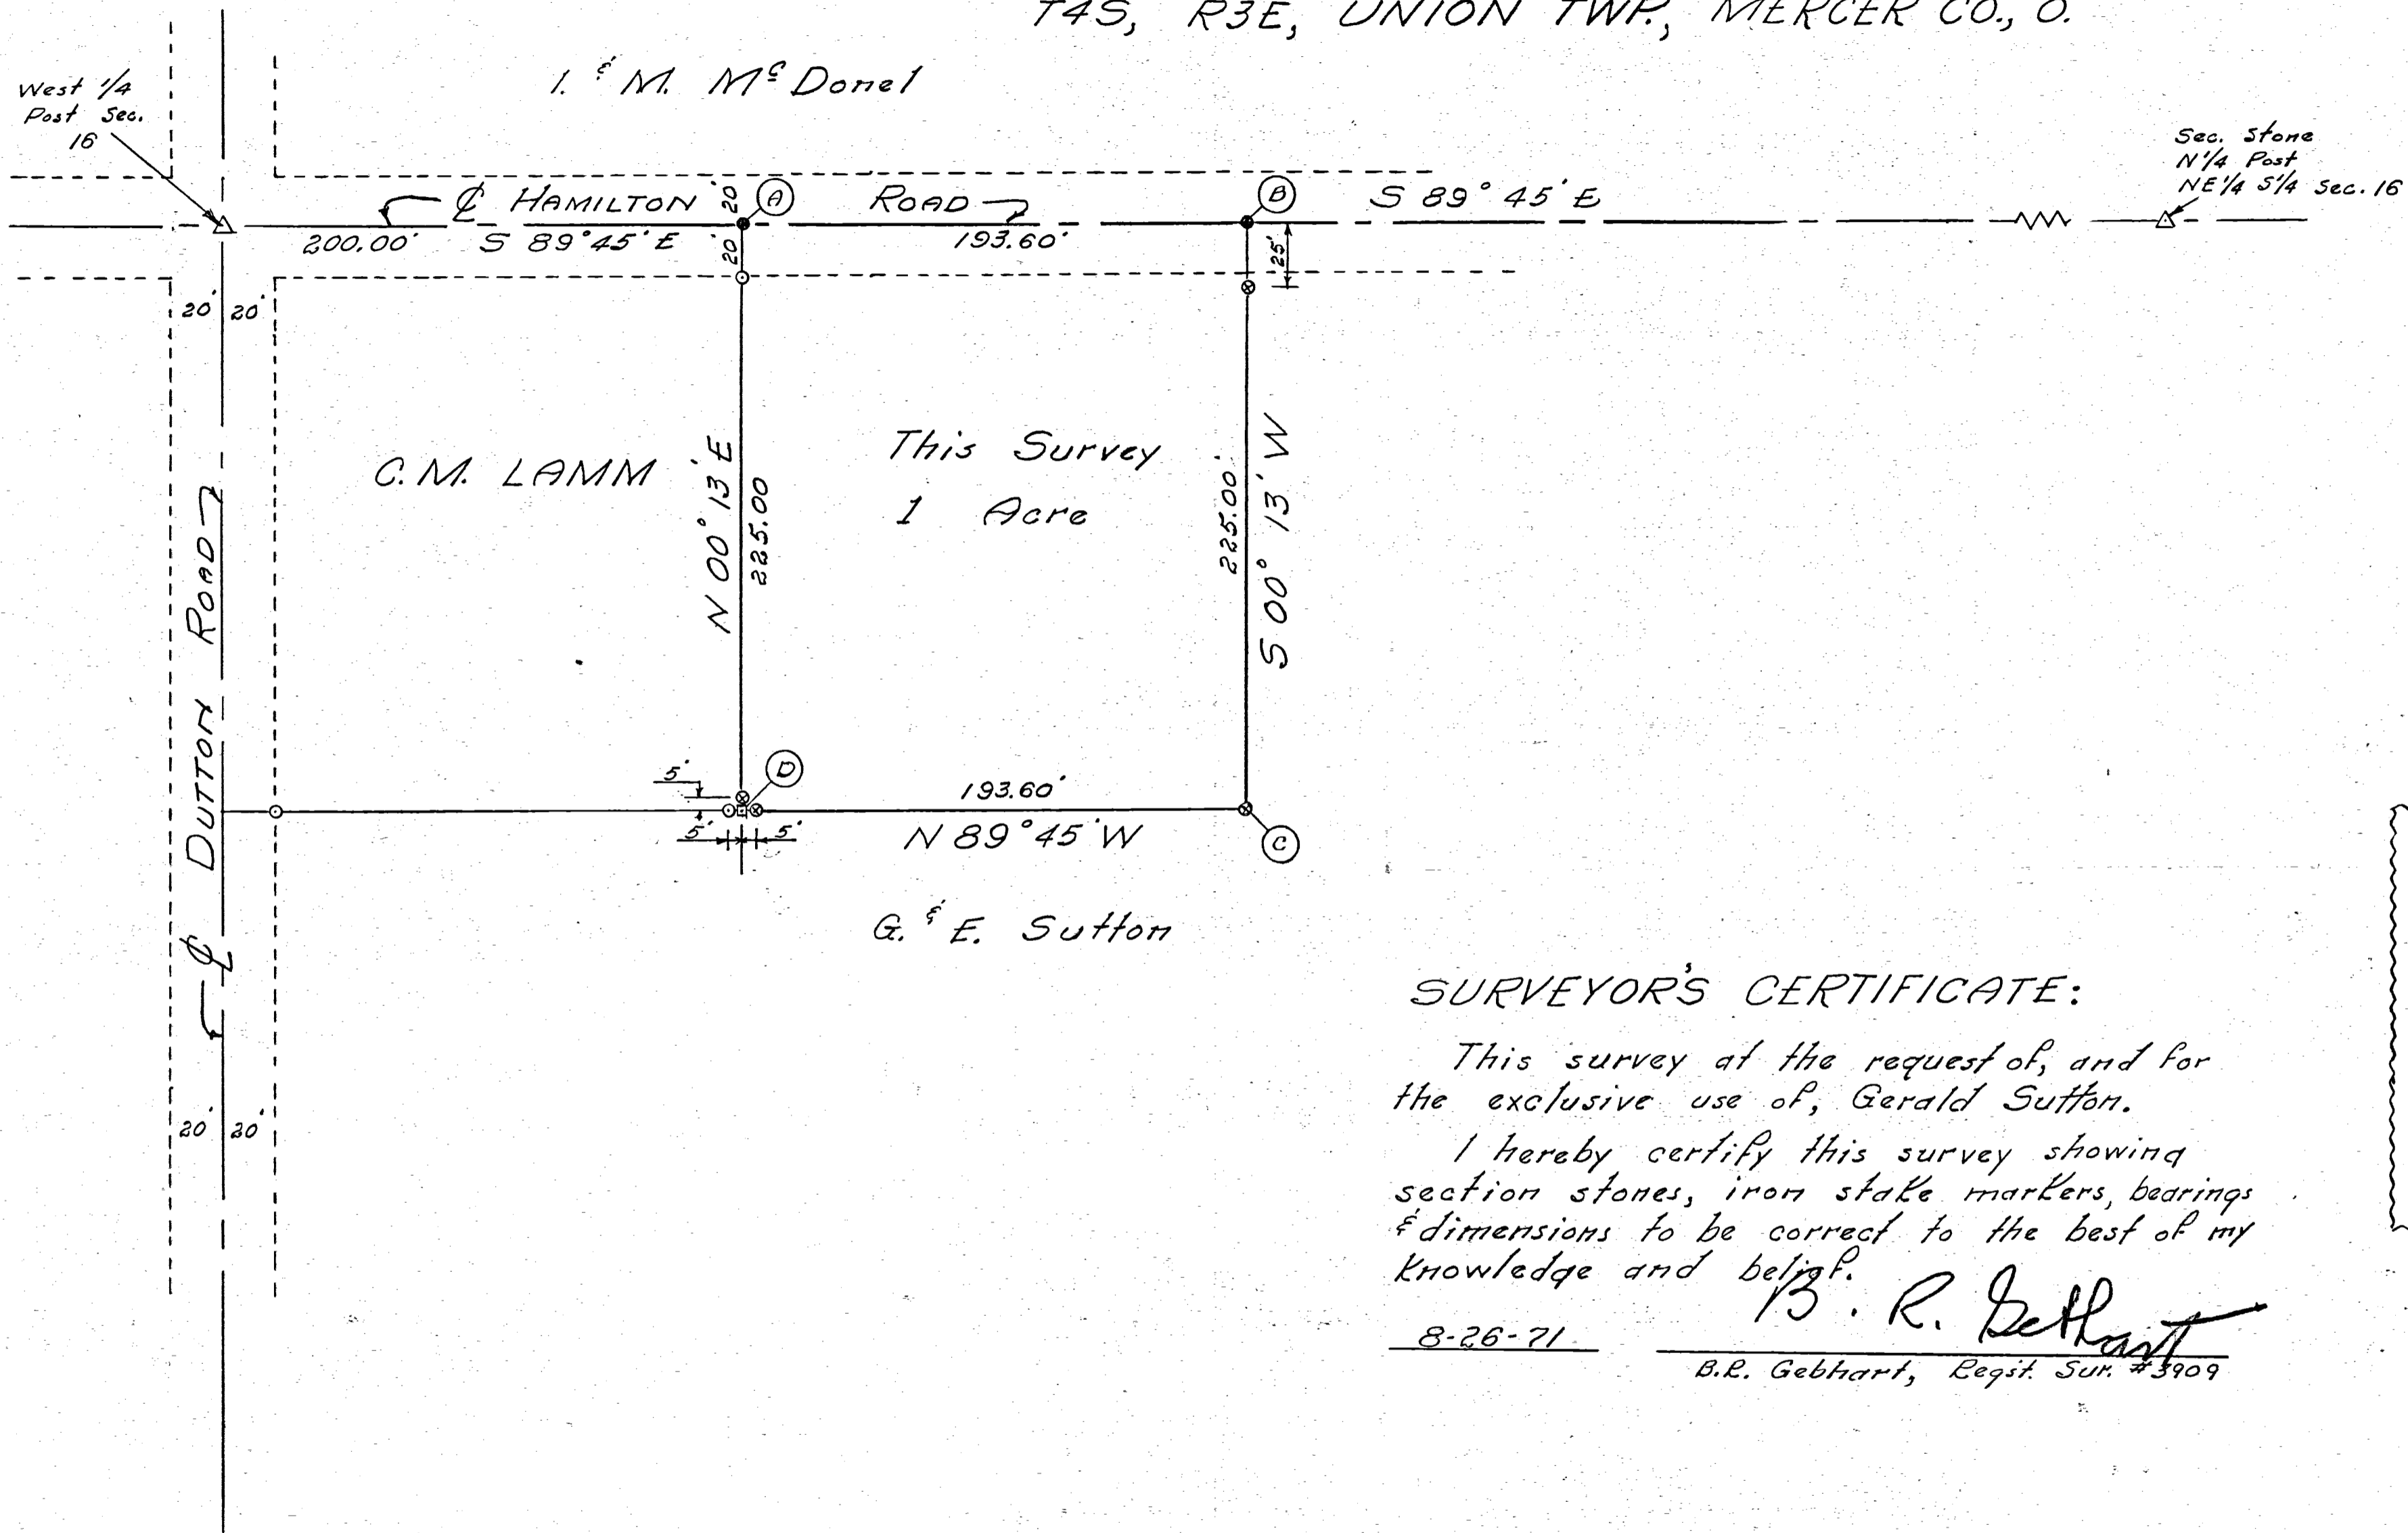 T4S, R3E, UNION TWP., MERCER CO., O.
I. & M. McDonel
West 1/4
Post Sec.
16
Sec. Stone
N 1/4 Post
NE 1/4 S 1/4 Sec. 16
℄ HAMILTON ROAD
20'
A
B
S 89° 45' E
200.00'
S 89° 45' E
20'
193.60'
25'
20' 20'
C. M. LAMM
N 00° 13' E
225.00
This Survey
1 Acre
225.00'
S 00° 13' W
℄ DUTTON ROAD
5'
D
193.60'
5' 5'
N 89° 45' W
C
G. & E. Sutton
20' 20'
SURVEYOR'S CERTIFICATE:
This survey at the request of, and for
the exclusive use of, Gerald Sutton.
I hereby certify this survey showing
section stones, iron stake markers, bearings
& dimensions to be correct to the best of my
knowledge and belief.
B. R. Gebhart
8-26-71
B.R. Gebhart, Regst. Sur. #3909